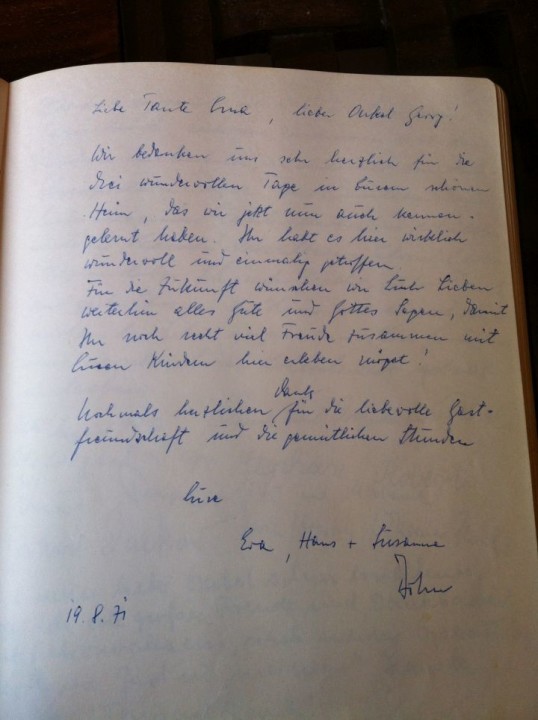 Liebe Tante Erna, lieber Onkel Georg!
Wir bedanken uns sehr herzlich für die
drei wundervollen Tage in Eurem schönen
Heim, das wir jetzt nun auch kennen-
gelernt haben. Ihr habt es hier wirklich
wundervoll und einmalig getroffen.
Für die Zukunft wünschen wir Euch Lieben
weiterhin alles Gute und Gottes Segen, damit
Ihr noch recht viel Freude zusammen mit
Euren Kindern hier erleben möget!
Dank
Nochmals herzlichen für die liebevolle Gast-
freundschaft und die gemütlichen Stunden
Eure
Eva, Hans + Susanne
19.8.71